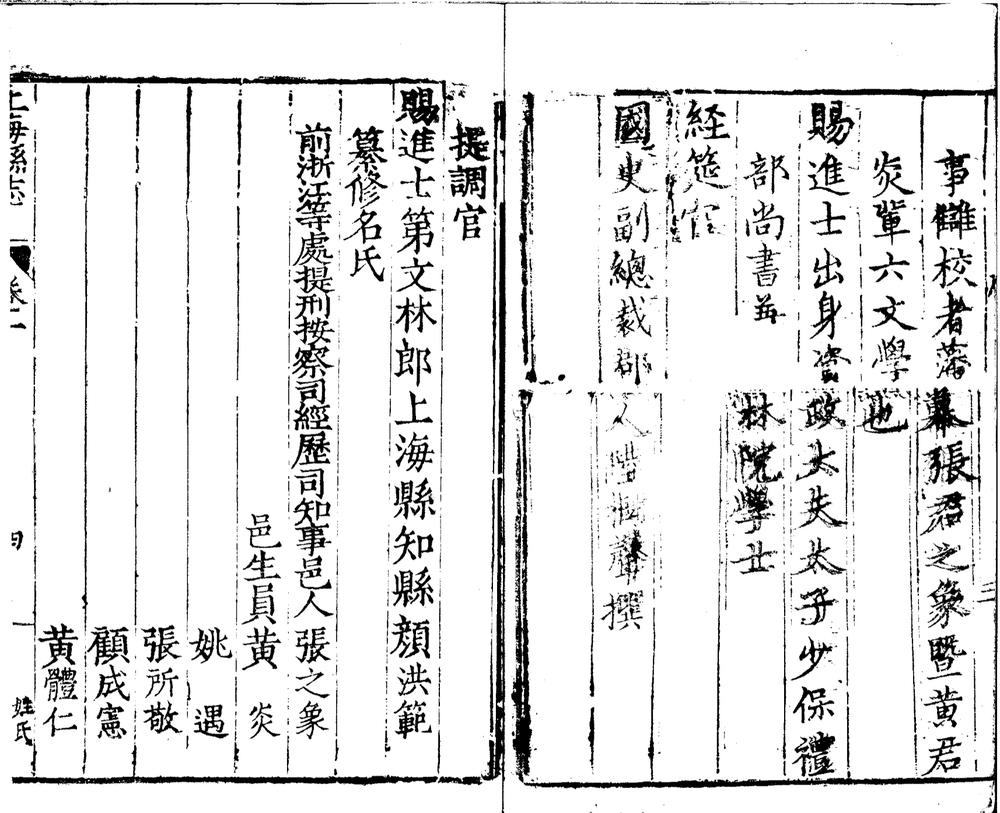 事讎校者藩幕張君之象暨黃君
炎輩六文學也
賜進士出身資政大夫太子少保禮
部尚書兼林院學士
経筵官
國史副總裁郡人陸樹聲撰
提調官
賜進士第文林郎上海縣知縣顏洪範
纂修名氏
前浙江等處提刑按察司經歷司知事邑人張之象
邑生員黃炎
姚遇
張所敬
顧成憲
黃體仁
上海縣志 姓氏